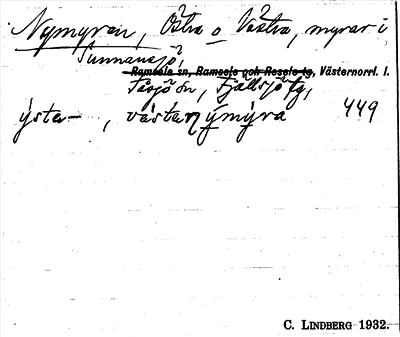 Nymyran, Östra o Västra, myrar i
Sunnansjö,
Ramsele sn, Ramsele och Resele tg, Västernorrl. l.
Tåsjö sn, Fjällsjö tg,
ýsta- , västaŋýmýra 449
C. LINDBERG 1932.